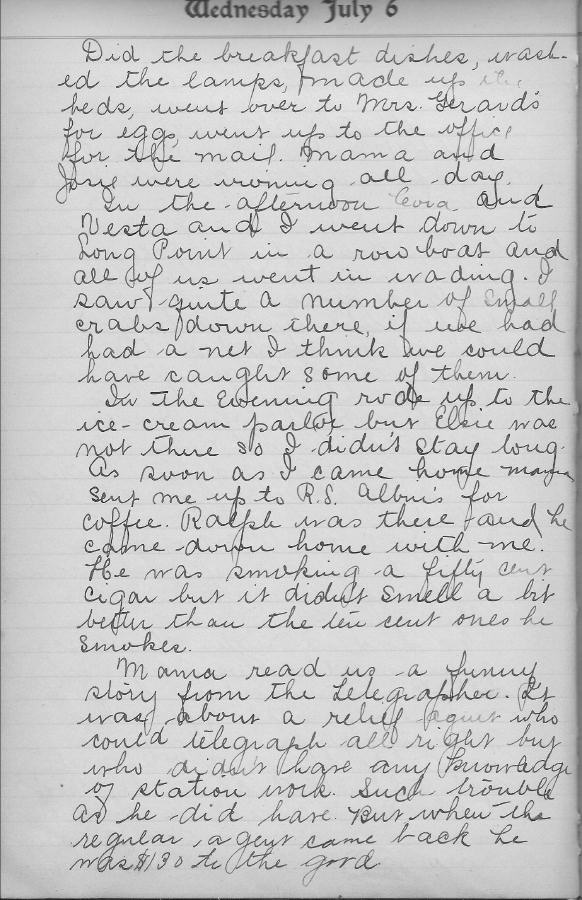 Wednesday July 6
Did the breakfast dishes, wash-
ed the lamps, made up the
beds, went over to Mrs. Gerard's
for eggs, went up to the office
for the mail. Mama and
were ironing all day.
In the afternoon Cora and
Vesta and I went down to
Long Point in a row boat and
all of us went in wading. I
saw quite a number of small
crabs down there, if we had
had a net I think we could
have caught some of them.
In the evening rode up to the
ice-cream parlor but Elsie was
not there so I didn't stay long.
As soon as I came home mama
sent me up to R.S. for
coffee. Ralph was there and he
came down home with me.
He was smoking a fifty cent
cigar but it didn't smell a bit
better than the ten cent ones he
smokes.
Mama read us a funny
story from the Telegrapher. It
was about a relief agent who
could telegraph all right but
who didn't have any knowledge
of station work. Such trouble
as he did have. But when the
regular agent came back he
was $130 to the good